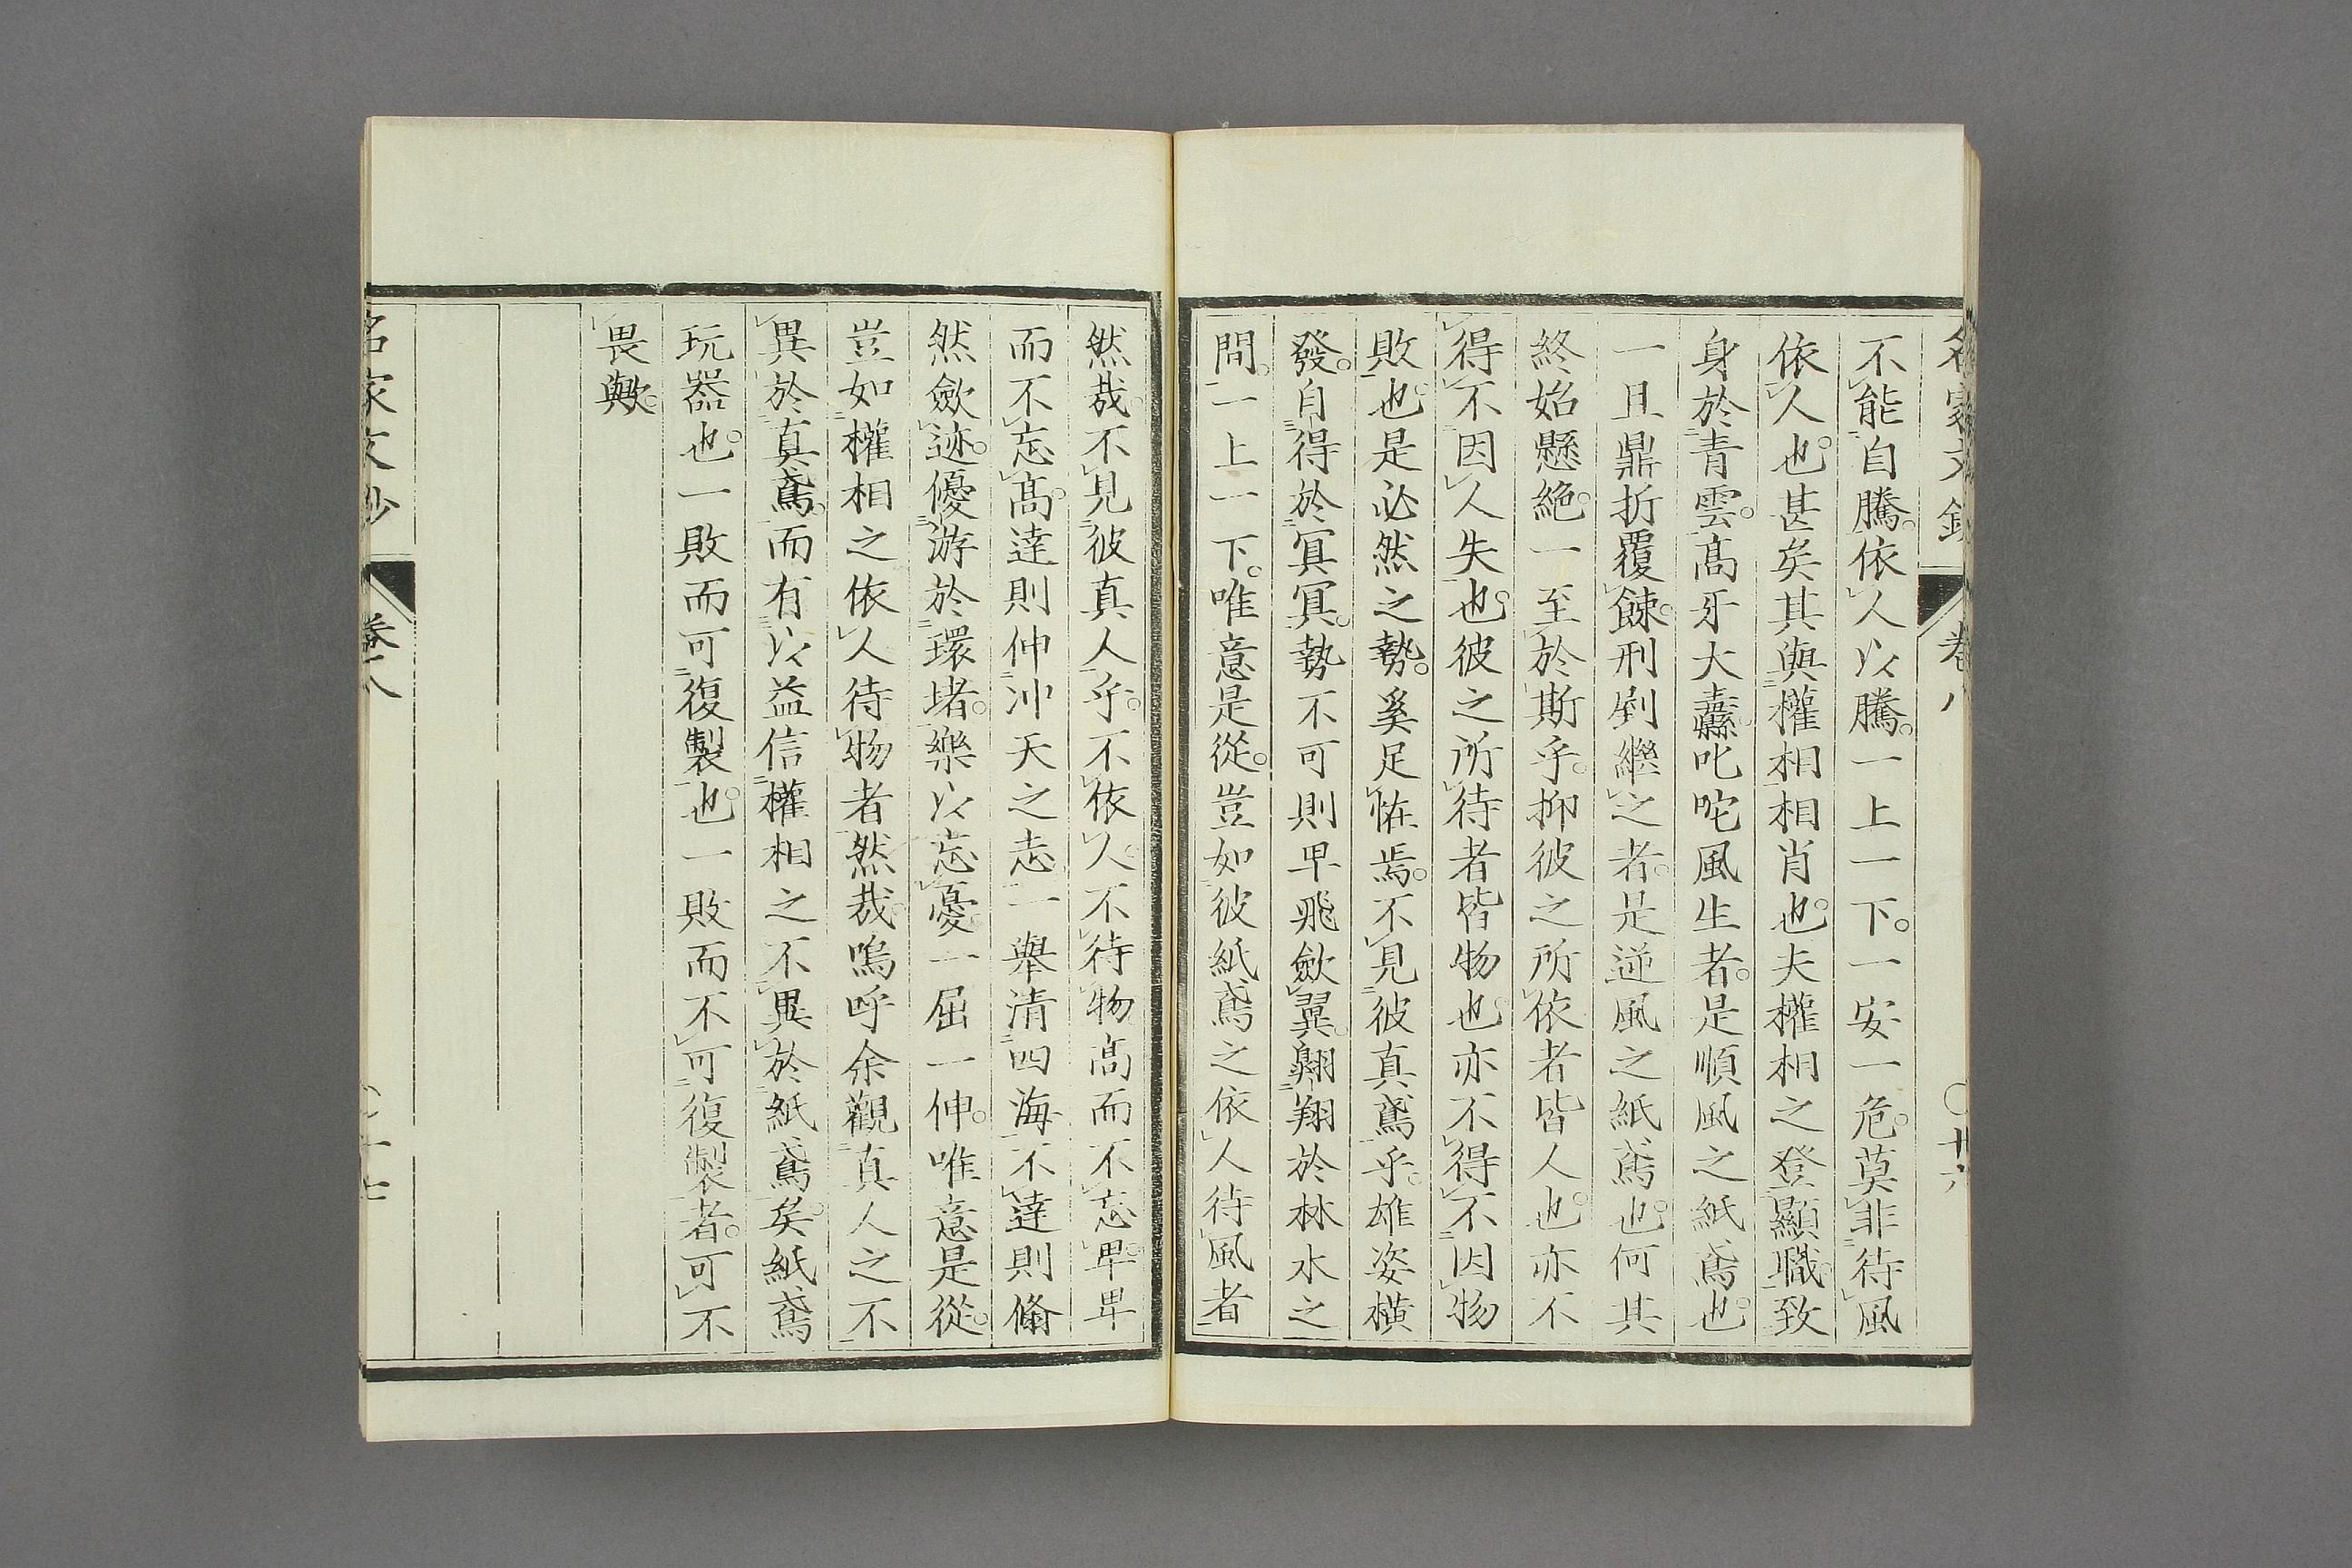 名家文鈔 卷八 〇廿六
不能自騰。依人以騰。一上一下。一安一危。莫非待風
依人也。甚矣其與權相相肖也。夫權相之登顯職。致
身於青雲。高牙大纛。叱咤風生者。是順風之紙鳶也。
一旦鼎折覆餗。刑剭繼之者。是逆風之紙鳶也。何其
終始懸絕。一至於斯乎。抑彼之所依者皆人也。亦不
得不因人失也。彼之所待者皆物也。亦不得不因物
敗也。是必然之勢。奚足恠焉。不見彼真鳶乎。雄姿橫
發。自得於冥冥。勢不可則卑飛歛翼。翺翔於林水之
間。一上一下。唯意是從。豈如彼紙鳶之依人待風者
然哉。不見彼真人乎。不依人。不待物。高而不忘卑。卑
而不忘高。達則伸冲天之志。一舉清四海。不達則翛
然歛迹。優游於環堵。樂以忘憂。一屈一伸。唯意是從。
豈如權相之依人待物者然哉。嗚呼余觀真人之不
異於真鳶。而有以益信權相之不異於紙鳶矣。紙鳶
玩器也。一敗而可復製也。一敗而不可復製者。可不
畏歟。
名家文鈔 卷八